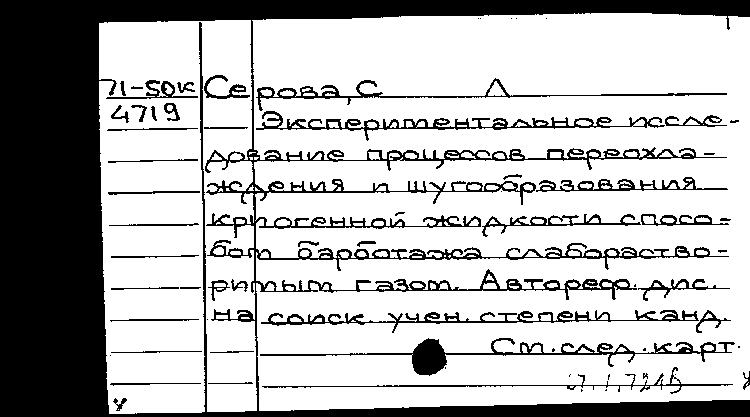 71-50к Серова, С Л
4719
Экспериментальное иссле-
дование процессов переохла-
ждения и шугообразования
криогенной жидкости спосо-
бом барботажа слабораство-
римым газом. Автореф. дис.
на соиск. учен. степени канд.
См. след. карт.